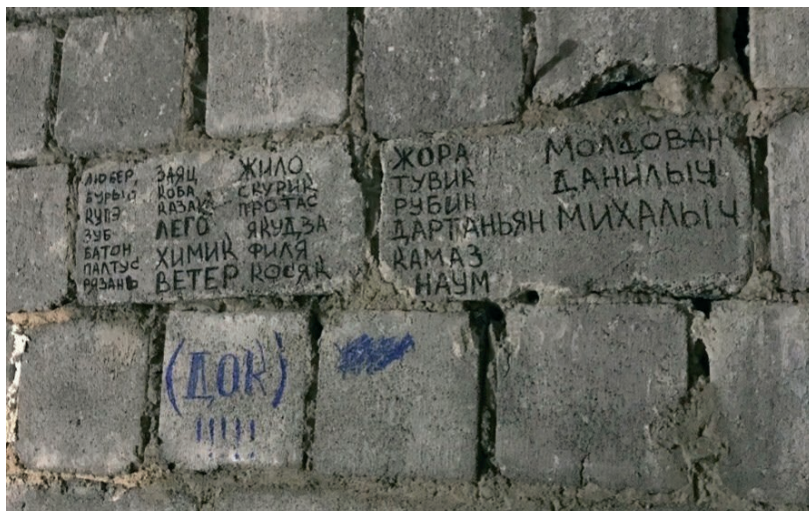 ЛЮБЕР,
БУРЫЙ
КУПЭ
ЗУБ
БАТОН
ПАЛТУС
РЯЗАНЬ
ЗАЯЦ
КОБА
КАЗАК
ЛЕГО
ХИМИК
ВЕТЕР
ЖИЛО
СКУРИК
ПРОТАС
ЯКУДЗА
ФИЛЯ
КОСЯК
ЖОРА
ТУВИК
РУБИН
ДАРТАНЬЯН
КАМАЗ
НАУМ
МОЛДОВАН
ДАНИЛЫЧ
МИХАЛЫЧ
(ДОК)
!!!!!